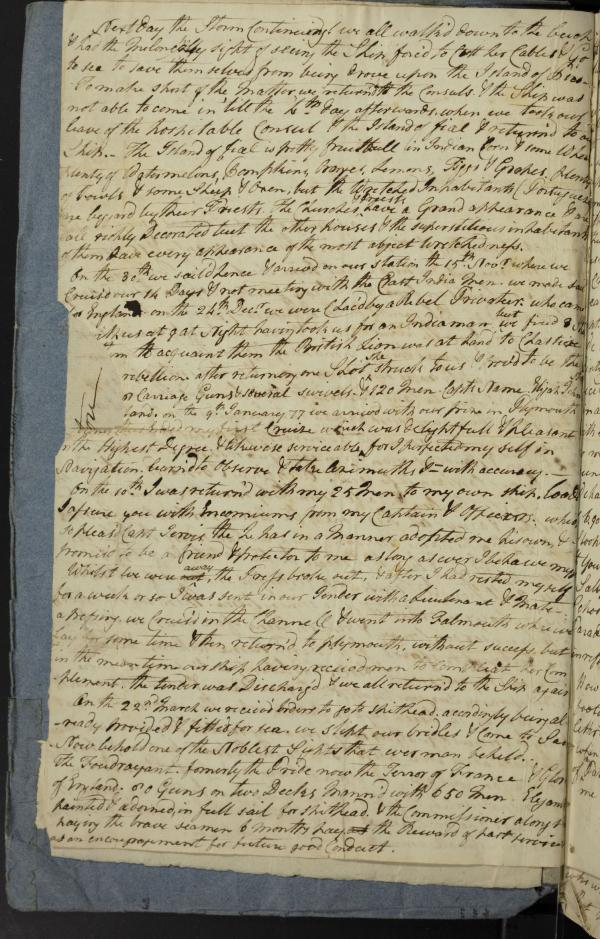 Next Day the Storm Continuing we all walk'd down to the beach
& had the Melancholy sight of seeing the Ship forced to Cutt her Cables & go
to sea to save themselves from being drove upon the Island of Pico
To make short of the Matter, we return'd to the Consuls & the Ship was
not able to come in till the 6th Day afterwards, when we took our
leave of the hospitable Consul & the Island of fial & return'd to our
Ship. The Island of fial is pretty fruitfull in Indian Corn & some Wheat
plenty of Watermelons, Pompkins, Oranges, Lemons, Figgs & Grapes, plenty
of fowls & some Sheep & Oxen, but the Wretched Inhabitants (Portuguese)
are beggard by their Priests. The Churches & Priests have a Grand appearance & are
all richly Decorated but the other houses & the superstitious inhabitants
of them have every appearance of the most abject wretchedness.
On the 30th we sail'd hence & arrived on our station the 15th Novr where we
Cruis'd our 14 Days & not meeting with the East India Men. we made sail
for England on the 24th Decr we were Chac'd by a Rebel Privateer. who came
us at 9 at Night having took us for an Indiaman but we fired
to acquaint them the British Lion was at hand to Chastise
rebellion after returning one Shot She struck to us & prov'd to be the
or Carriage Guns & several swivels. & 120 Men Capts Name
land. on the 9th January 77 we arrived with our prize in Plymouth
my first Cruize which was delightfull & Pleasant
in the Highest Degree & likewise serviceable for I perfected my self in
Navigation. learnd to Observe & take Azimuths &c with accuracy.
On the 10th I was return'd with my 25 Men to my own ship. loaded
I assure you with Encomiums from my Captain & Officers. which
so pleas'd Capt Jervis that he has in a Manner adopted me his own, &
promised to be a friend & protector to me as long as ever I behave myself
Whilst we were away, the Press broke out, & after I had rested myself
for a week or so I was sent in our Tender with a Lieutenant & Mate
a Pressing. we Cruis'd in the Channell & went into Falmouth where we
lay for some time & then return'd to plymouth. without success, but
in the mean time our ship having receivd men to her Com
plement. the tender was Discharg'd & we all return'd to the Ship again
On the 22nd March we received orders to go to spithead. accordingly being al
ready provided & fitted for sea. we slipt our bridles & Came to Sea
Now behold one of the Noblest Sights that ever man beheld.
The Foudroyant. formerly the Pride now the Terror of France & Glory
of England. 80 Guns on two Decks Mann'd with 650 Men Elegantly
painted & adorned, in full sail for spithead. & the Commissioner along
paying the brave seamen 6 months pay as the Reward of past services
as an encouragement for future good Conduct.